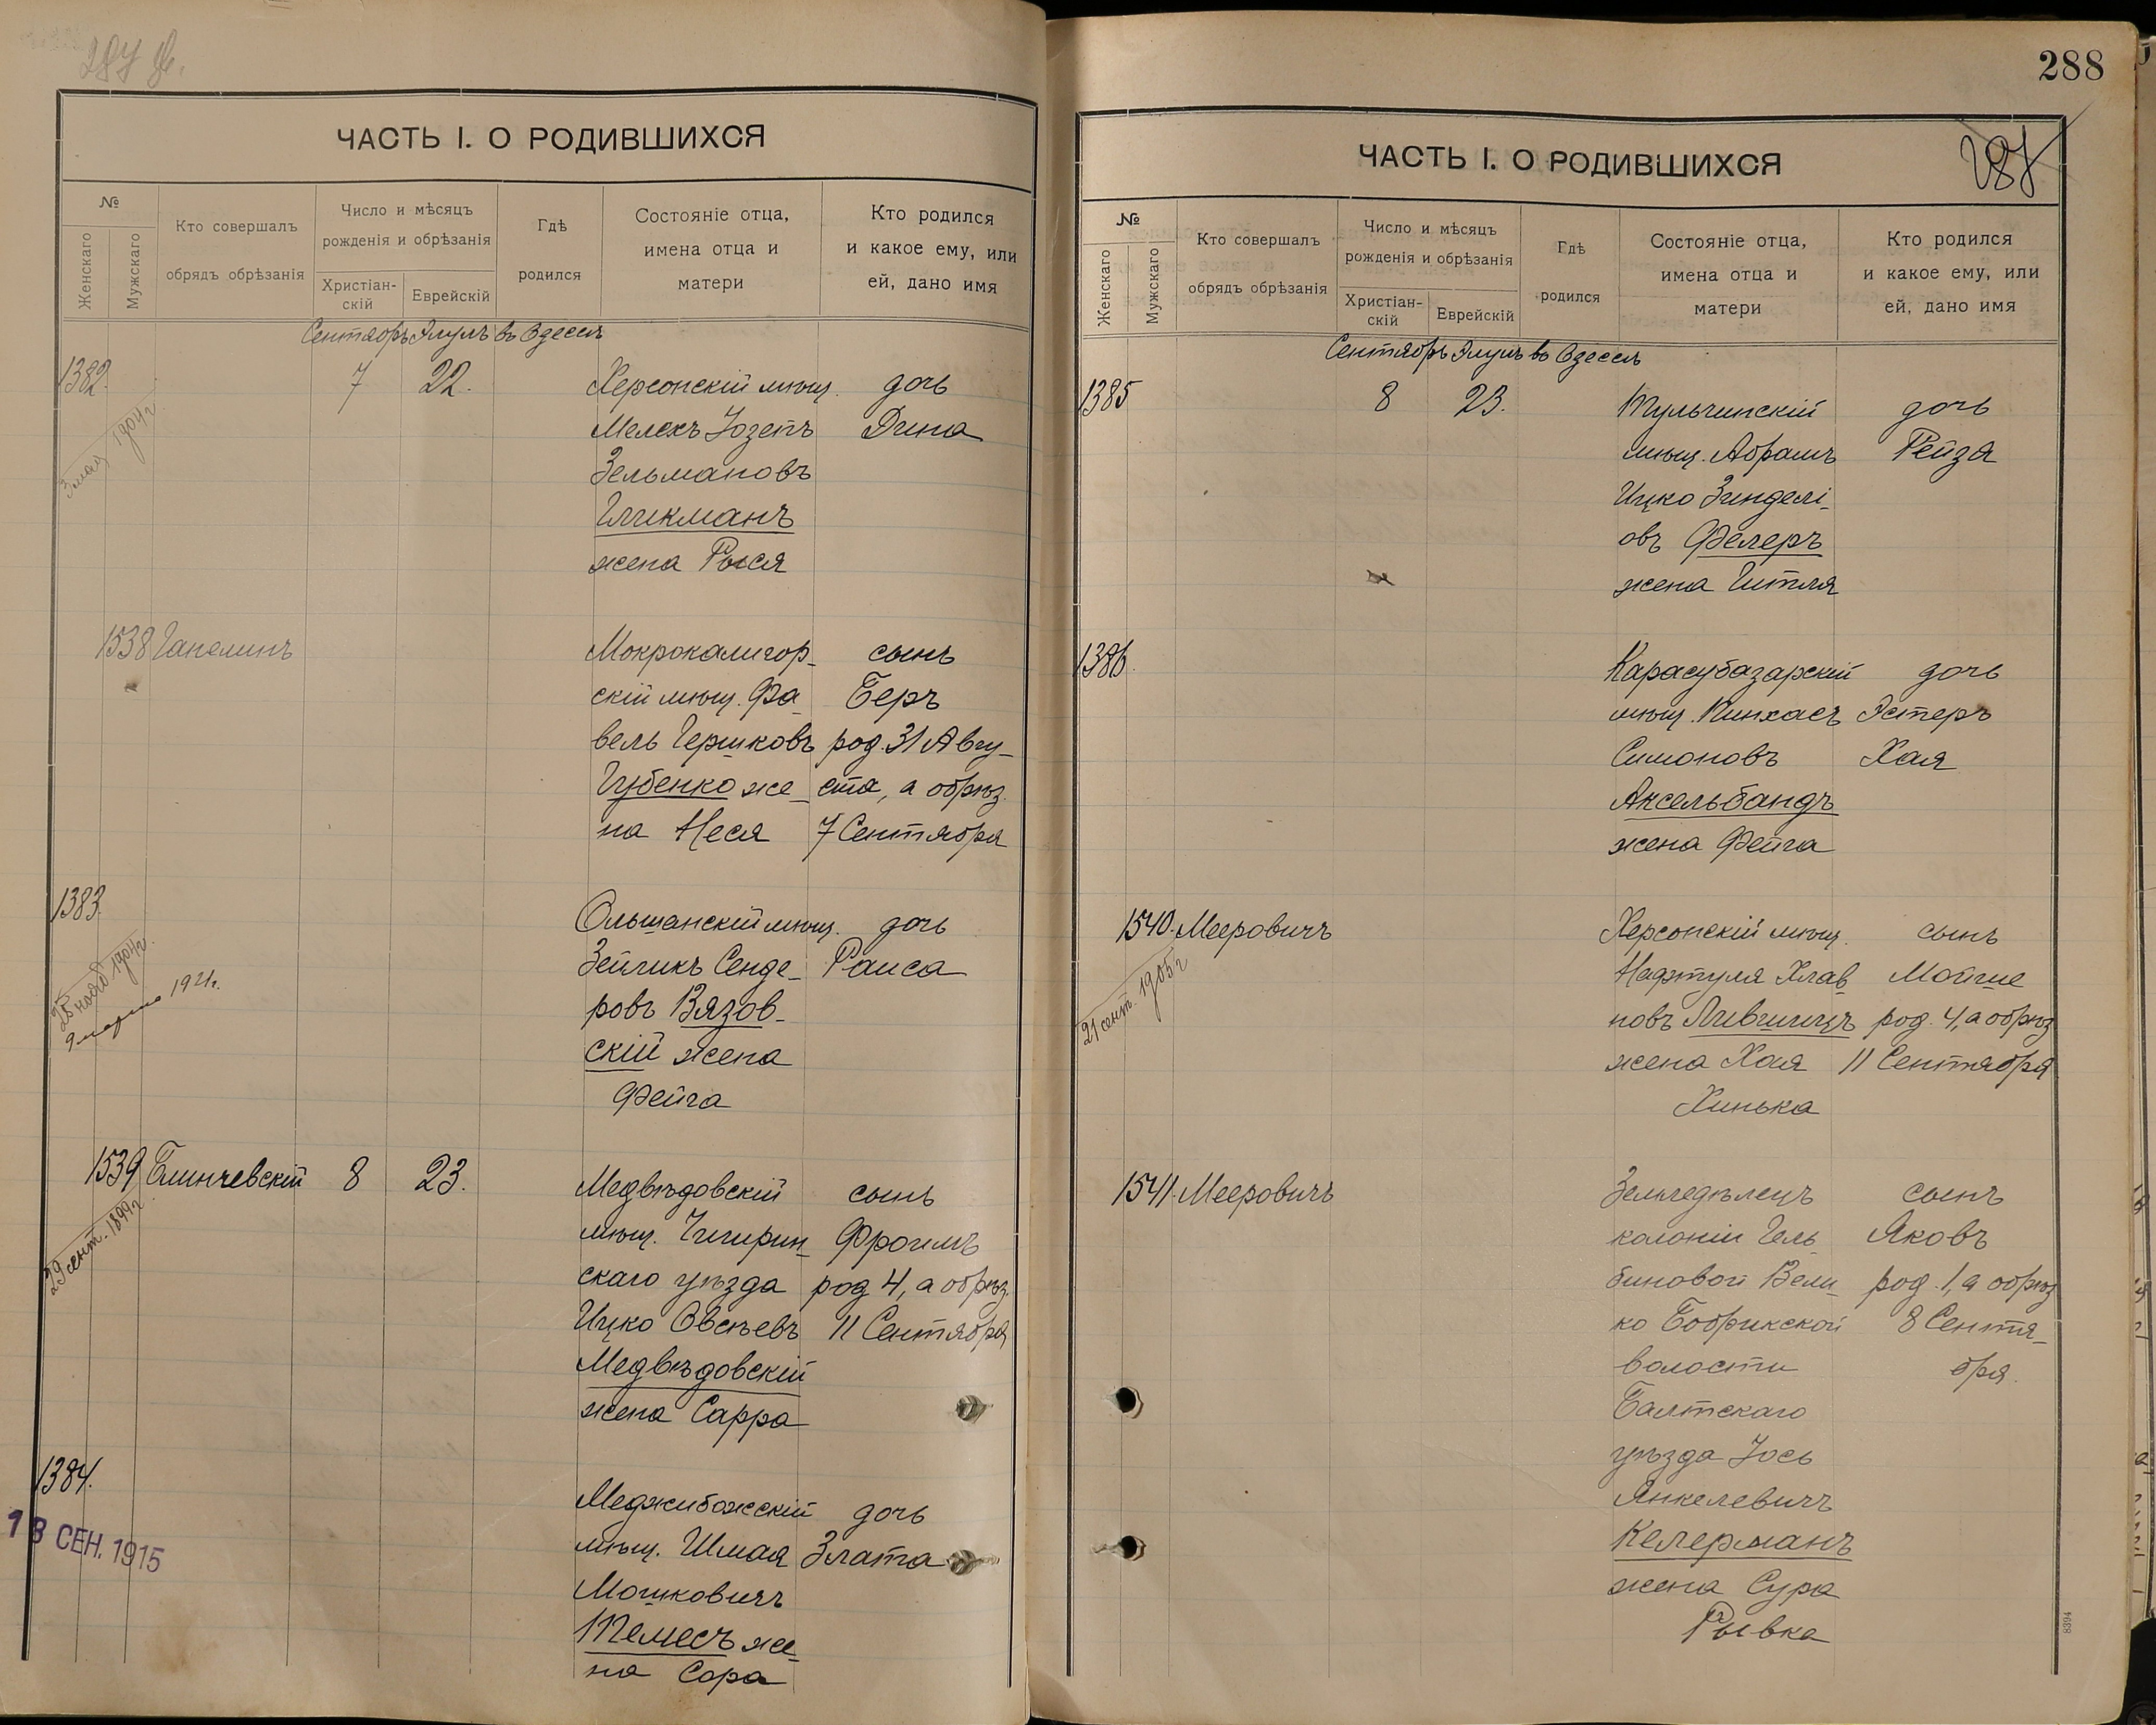 287 об.
ЧАСТЬ I. О РОДИВШИХСЯ
№
Женскаго
Мужскаго
Кто совершалъ
обрядъ обрѣзанія
Число и мѣсяцъ
рожденія и обрѣзанія
Христіан-
скій
Еврейскій
Гдѣ
родился
Состояніе отца,
имена отца и
матери
Кто родился
и какое ему, или
ей, дано имя
Сентябрь Элулъ въ Одессѣ
1382. 7 22. Херсонскій мѣщ. дочь
Мелехъ Іозепъ Дина
Зельмановъ
Гликманъ
жена Рыся
3 мая 1904 г.
1538 Ганелинъ Мокрокалигор- сынъ
скій мѣщ. Фа- Беръ
вель Гершковъ род. 31 Авгу-
Губенко же- ста, а обрѣз.
на Неся 7 Сентября
1383. Ольшанскій мѣщ. дочь
Зейликъ Сенде- Раиса
ровъ Вязов-
скій жена
Фейга
25 нояб 1904 г.
9 марта 1921 г.
1539 Блинчевскій 8 23. Медвѣдовскій сынъ
мѣщ. Чигирин- Фроимъ
скаго уѣзда род 4, а обрѣз.
Ицко Овсѣевъ 11 Сентября
Медвѣдовскій
жена Сарра
29 сент. 1899 г.
1384. Меджибожескій дочь
мѣщ. Шмая Злата
Мошковичъ
Темесъ же-
на Сора
18 СЕН. 1915
288
287
ЧАСТЬ I. О РОДИВШИХСЯ
№
Женскаго
Мужскаго
Кто совершалъ
обрядъ обрѣзанія
Число и мѣсяцъ
рожденія и обрѣзанія
Христіан-
скій
Еврейскій
Гдѣ
родился
Состояніе отца,
имена отца и
матери
Кто родился
и какое ему, или
ей, дано имя
Сентябрь Элулъ въ Одессѣ
1385 8 23. Тульчинскій дочь
мѣщ. Абрамъ Рейзя
Ицко Зинделі-
овъ Фелеръ
жена Гитля
1386. Карасубазарскій дочь
мѣщ. Пинхасъ Эстеръ
Симоновъ Хая
Аксельбандъ
жена Фейга
1540. Мееровичъ Херсонскій мѣщ. сынъ
Нафтуля Хлав- Мойше
новъ Лившицъ род. 4, а обрѣз
жена Хая 11 Сентября
Хинька
21 сент. 1905 г
1541. Мееровичъ Земледѣлецъ сынъ
колоніи Гель- Яковъ
биновой Вели- род. 1, а обрѣз
ко Бобрикской 8 Сентя-
волости бря.
Балтскаго
уѣзда Іось
Янкелевичъ
Келерманъ
жена Сура
Рывка
8394